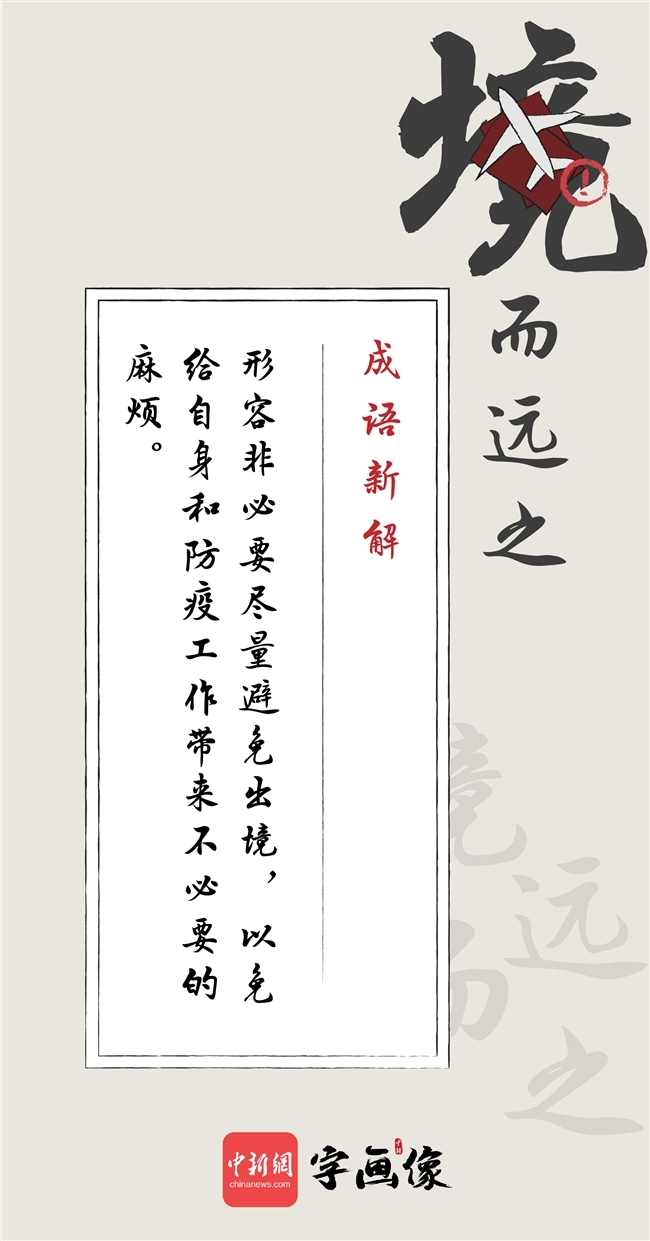 境而远之
成语新解
形容非必要尽量避免出境，以免
给自身和防疫工作带来不必要的
麻烦。
境
远
而
之
中新網
chinanews.com
字画像